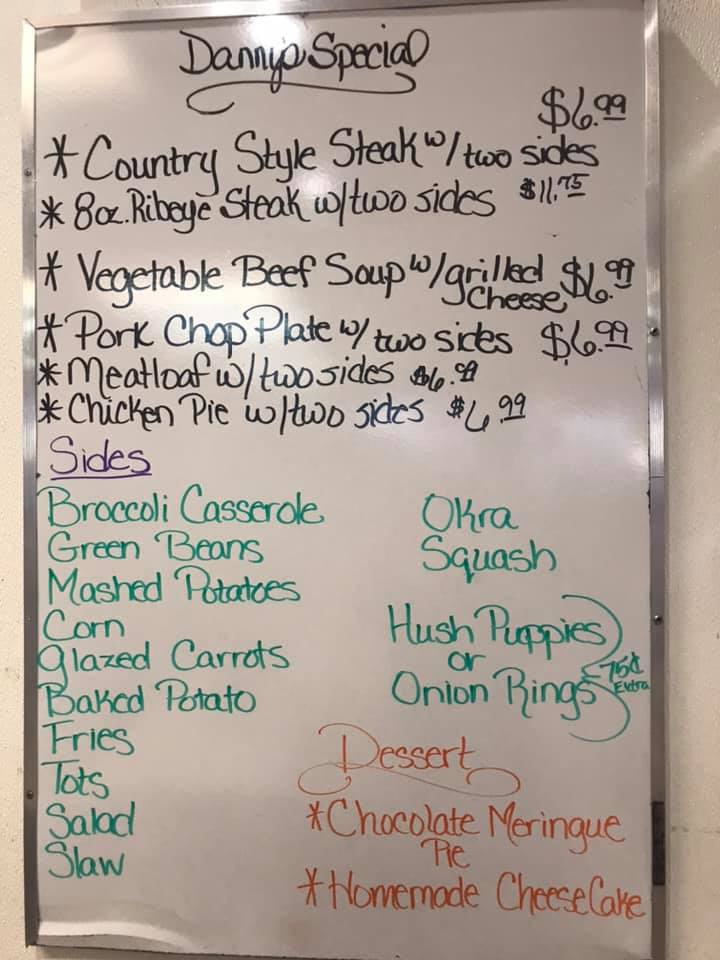 Danny's Special
$6.99
* Country Style Steak w/ two sides
* 8oz. Ribeye Steak w/two sides $11.75
* Vegetable Beef Soup w/grilled Cheese $6.99
* Pork Chop Plate w/ two sides $6.99
* Meatloaf w/two sides $6.99
* Chicken Pie w/two sides $6.99
Sides
Broccoli Casserole
Green Beans
Mashed Potatoes
Corn
Glazed Carrots
Baked Potato
Fries
Tots
Salad
Slaw
Okra
Squash
Hush Puppies
or
Onion Rings
75¢
Extra
Dessert
*Chocolate Meringue
Pie
*Homemade CheeseCake